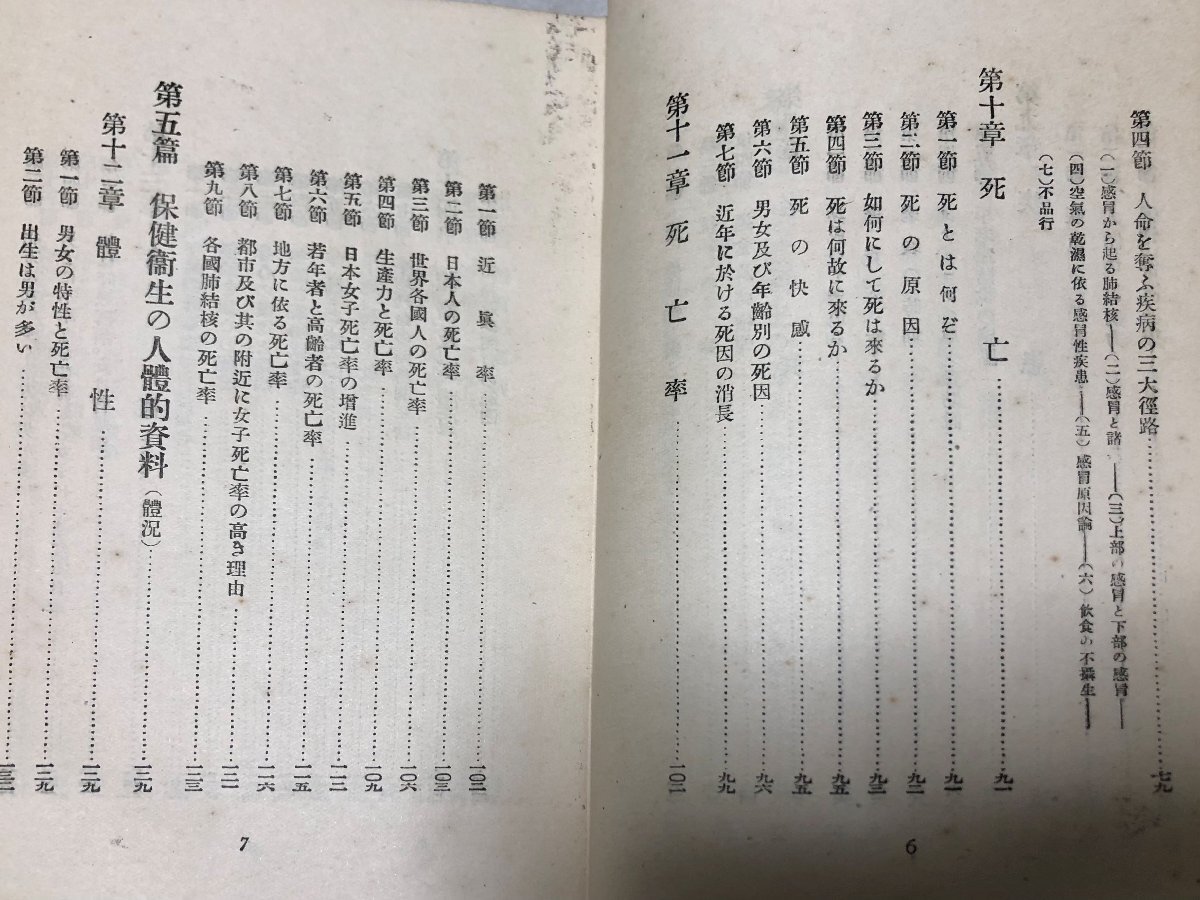 第四節 人命を奪ふ疾病の三大徑路……七九
(一)感冒から起る肺結核——(二)感冒と諸——(三)上部の感冒と下部の感冒——
(四)空氣の乾濕に依る感冒性疾患——(五)感冒原因論——(六)飮食の不攝生——
(七)不品行
第十章 死亡……九一
第一節 死とは何ぞ……九一
第二節 死の原因……九二
第三節 如何にして死は來るか……九三
第四節 死は何故に來るか……九五
第五節 死の快感……九五
第六節 男女及び年齡別の死因……九六
第七節 近年に於ける死因の消長……九九
第十一章 死亡率……一〇二
6
第一節 近眞率……一〇二
第二節 日本人の死亡率……一〇三
第三節 世界各國人の死亡率……一〇六
第四節 生產力と死亡率……一〇九
第五節 日本女子死亡率の增進……一一二
第六節 若年者と高齡者の死亡率……一一五
第七節 地方に依る死亡率……一一六
第八節 都市及び其の附近に女子死亡率の高き理由……一二一
第九節 各國肺結核の死亡率……一二三
第五篇 保健衞生の人體的資料(體況)……一二九
第十二章 體性……一二九
第一節 男女の特性と死亡率……一二九
第二節 出生は男が多い……一三一
7